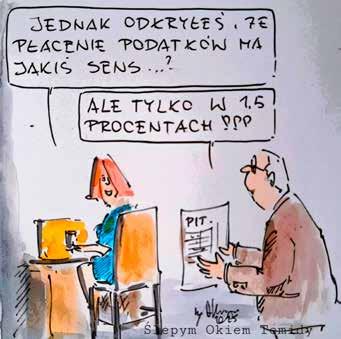 JEDNAK ODKRYŁEŚ, ŻE
PŁACENIE PODATKÓW MA
JAKIŚ SENS...?
ALE TYLKO W 1.5
PROCENTACH !???
PIT.
Ślepym Okiem Temidy